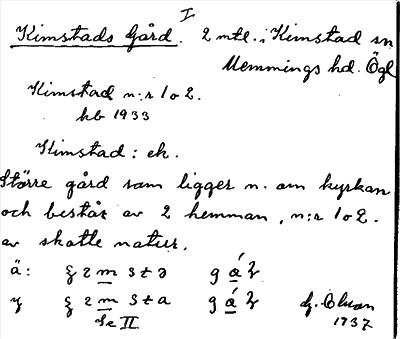 I
Kimstads Gård. 2 mtl. i Kimstad sn
Memmings hd. Ögl
Kimstad n:r 1 o 2.
hb 1933
Kimstad: ek.
Större gård som ligger n. om kyrkan
och består av 2 hemman, n:r 1 o 2.
av skatte natur.
ä:
y
Se II
1937